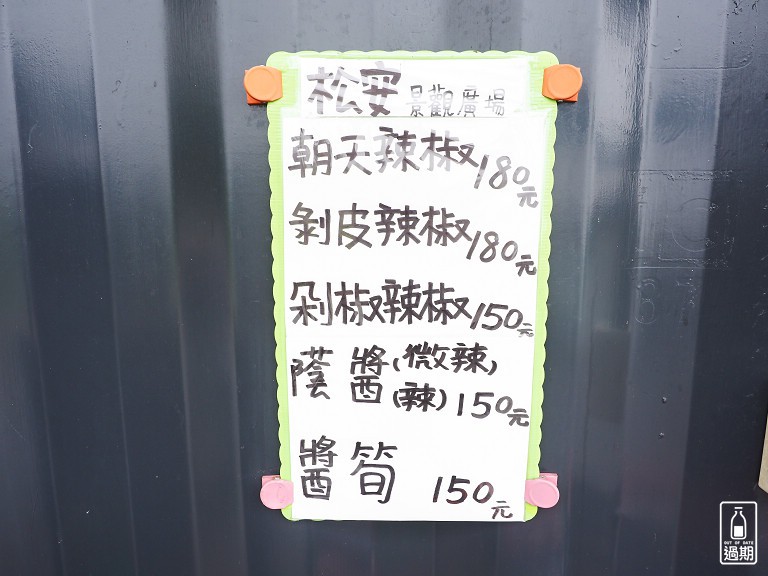 松安景觀廣場
朝天辣椒180元
剝皮辣椒180元
剁椒辣椒150元
蔭醬(微辣)
(辣)150元
醬筍 150元
OUT OF DATE
過期